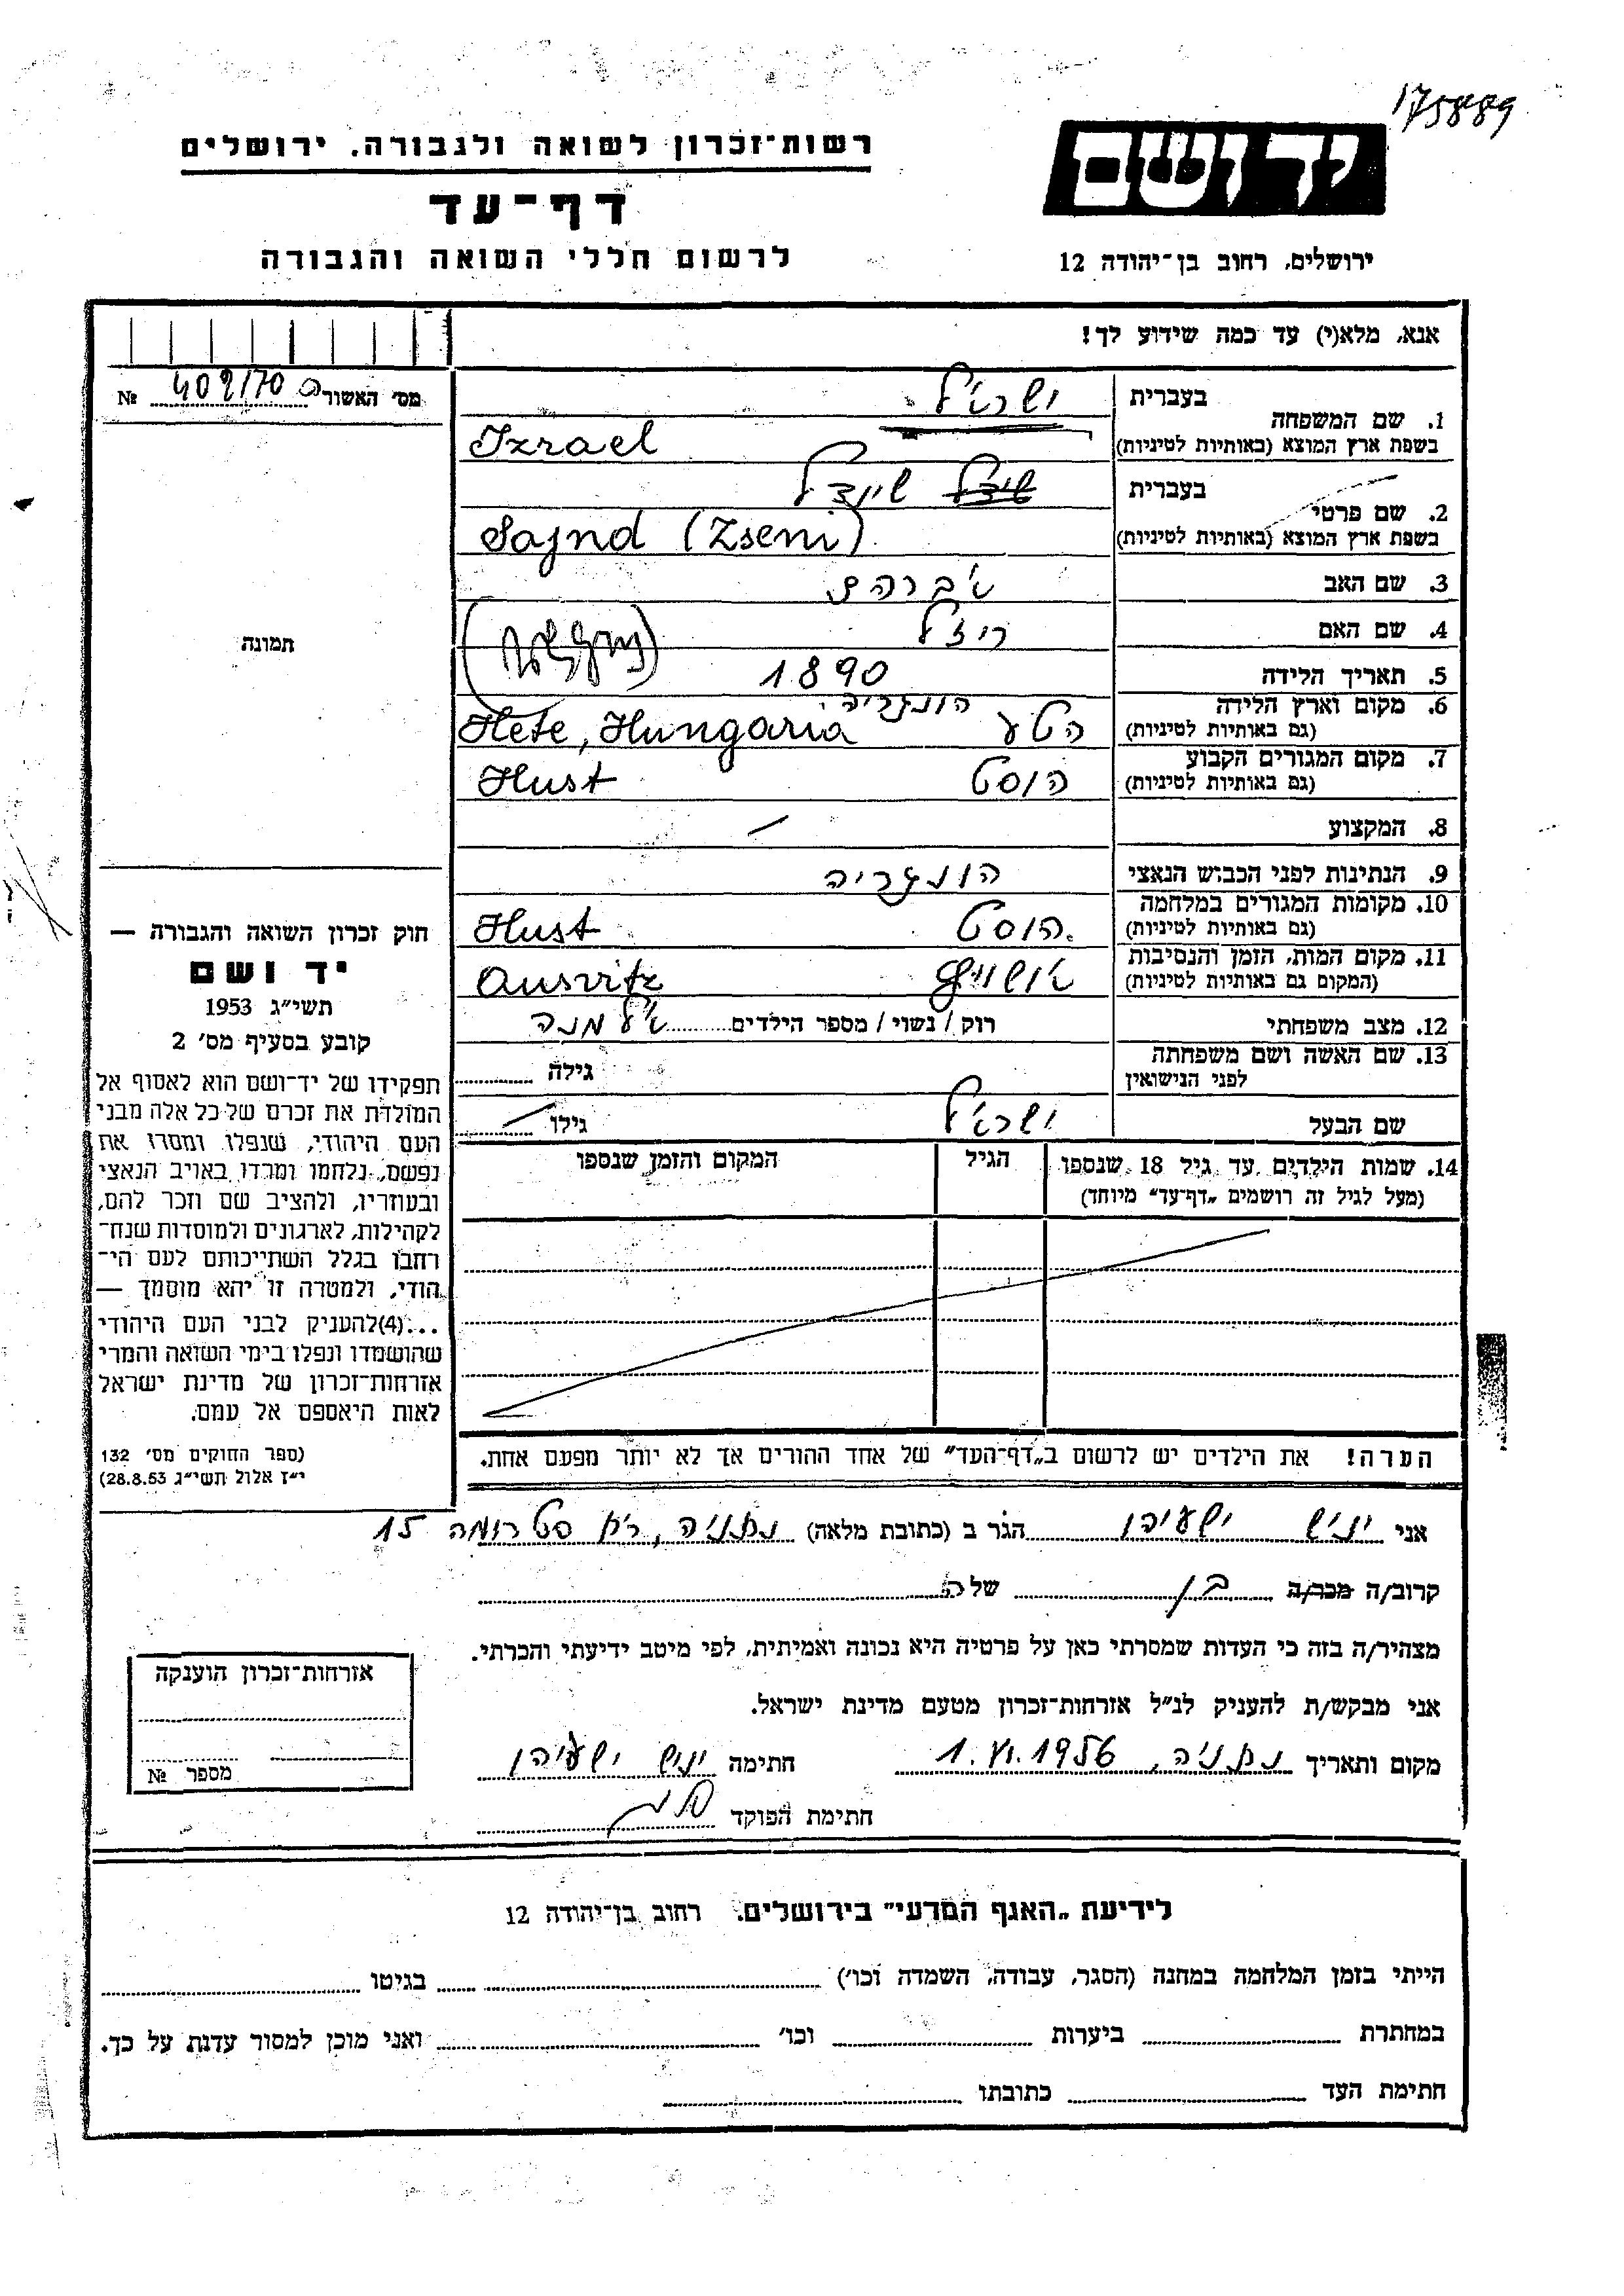 175889
יד ושם
ירושלים, רחוב בן־יהודה 12
רשות־זכרון לשואה ולגבורה, ירושלים
דף־עד
לרשום חללי השואה והגבורה
אנא, מלא(י) עד כמה שידוע לך!
מס׳ האשור 402/70 №
תמונה
1. שם המשפחה
בעברית ישראל
בשפת ארץ המוצא (באותיות לטיניות) Izrael
2. שם פרטי
בעברית שיינדל
בשפת ארץ המוצא (באותיות לטיניות) Sajnd (Zseni)
3. שם האב אברהם
4. שם האם רייזל
5. תאריך הלידה 1890
6. מקום וארץ הלידה הונגריה
(גם באותיות לטיניות) הטע Hete, Hungaria
7. מקום המגורים הקבוע
(גם באותיות לטיניות) הוסט Hust
8. המקצוע
9. הנתינות לפני הכבוש הנאצי הונגריה
10. מקומות המגורים במלחמה
(גם באותיות לטיניות) הוסט Hust
11. מקום המות, הזמן והנסיבות
(המקום גם באותיות לטיניות) אושוויץ Ausvitz
12. מצב משפחתי רוק / נשוי / מספר הילדים אלמנה
13. שם האשה ושם משפחתה
לפני הנישואין גילה
שם הבעל ישראל גילו
14. שמות הילדים עד גיל 18 שנספו הגיל המקום והזמן שנספו
(מעל לגיל זה רושמים „דף־עד״ מיוחד)
הערה! את הילדים יש לרשום ב„דף־העד״ של אחד ההורים אך לא יותר מפעם אחת.
חוק זכרון השואה והגבורה —
יד ושם
תשי״ג 1953
קובע בסעיף מס׳ 2
תפקידו של יד־ושם הוא לאסוף אל
המולדת את זכרם של כל אלה מבני
העם היהודי, שנפלו ומסרו את
נפשם, נלחמו ומרדו באויב הנאצי
ובעוזריו, ולהציב שם וזכר להם,
לקהילות, לארגונים ולמוסדות שנח־
רבו בגלל השתייכותם לעם הי־
הודי, ולמטרה זו יהא מוסמך —
...(4)להעניק לבני העם היהודי
שהושמדו ונפלו בימי השואה והמרי
אזרחות־זכרון של מדינת ישראל
לאות היאספם אל עמם.
(ספר החוקים מס׳ 132
י״ז אלול תשי״ג 28.8.53)
אני ישעיהו הגר ב (כתובת מלאה) נתניה, רח סטרומה 15
קרוב/ה מכר/ה בן של ה
מצהיר/ה בזה כי העדות שמסרתי כאן על פרטיה היא נכונה ואמיתית, לפי מיטב ידיעתי והכרתי.
אני מבקש/ת להעניק לנ״ל אזרחות־זכרון מטעם מדינת ישראל.
מקום ותאריך נתניה, 1.VI.1956 חתימה ישעיהו
חתימת הפוקד
אזרחות־זכרון הוענקה
מספר №
לידיעת „האגף המדעי״ בירושלים, רחוב בן־יהודה 12
הייתי בזמן המלחמה במחנה (הסגר, עבודה, השמדה וכו׳) בגיטו
במחתרת ביערות וכו׳ ואני מוכן למסור עדות על כך.
חתימת העד כתובתו